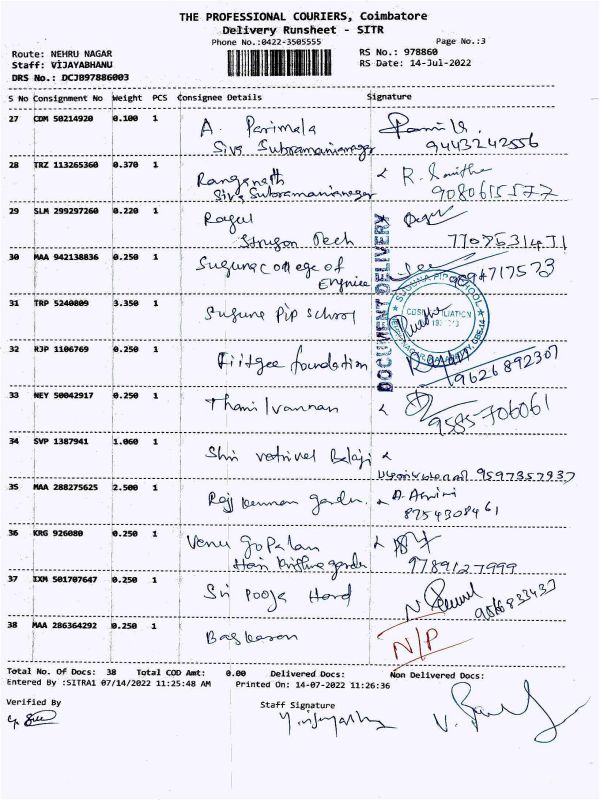 THE PROFESSIONAL COURIERS, Coimbatore
Delivery Runsheet - SITR
Phone No.:0422-3505555
Page No.:3
Route: NEHRU NAGAR
RS No.: 978860
Staff: VIJAYABHANU
RS Date: 14-Jul-2022
DRS No.: DCJB97886003
S No Consignment No Weight PCS Consignee Details Signature
27 CDM 50214920 0.100 1 A. Parimala
Siva Subramanianagar 9443242556
28 TRZ 113265360 0.370 1 Ranganath R. Smitha
Siva Subramanianagar 9080615577
29 SLM 299297260 0.220 1 Ragul
Tech
30 MAA 942138836 0.250 1 Suguna College of
9894717573
DOCUMENT DELIVERY
31 TRP 5240809 3.350 1 Suguna Pip School
SUGUNA PIP SCHOOL
32 RJP 1106769 0.250 1 Fiitgee foundation
9626892307
33 NEY 50042917 0.250 1 Thamilvannan
9585706061
34 SVP 1387941 1.060 1 Shri vetrivel Balaji
9597357937
35 MAA 288275625 2.500 1 Raj
8754308461
36 KRG 926080 0.250 1 Venu Gopalan
Hari Krithna garden 9789127999
37 IXM 501707647 0.250 1 Sri Pooja Hard
38 MAA 286364292 0.250 1 Baskaran N/P
Total No. Of Docs: 38 Total COD Amt: 0.00 Delivered Docs: Non Delivered Docs:
Entered By :SITRA1 07/14/2022 11:25:48 AM Printed On: 14-07-2022 11:26:36
Verified By
Staff Signature